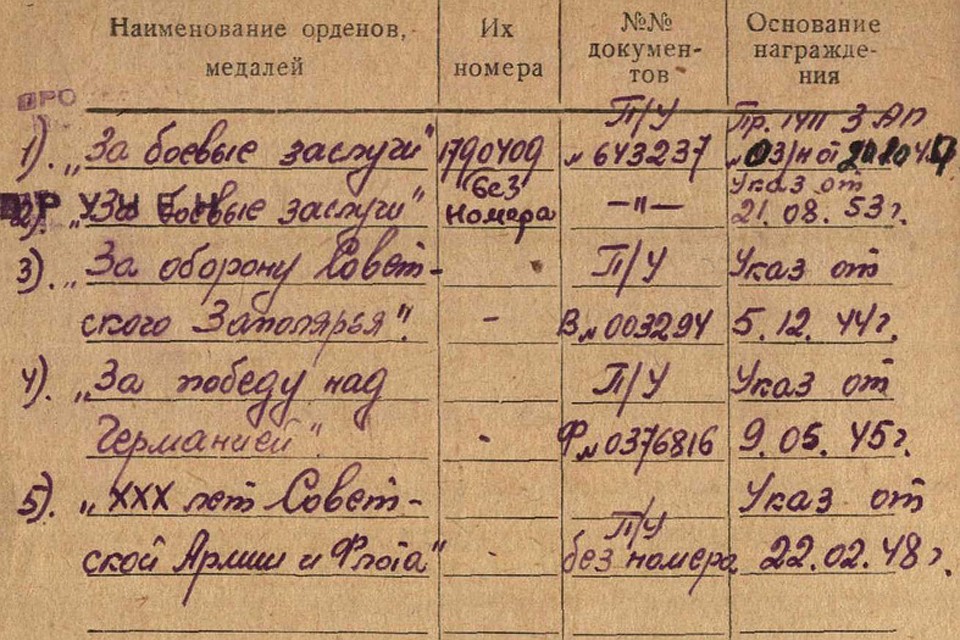 Наименование орденов, медалей
Их номера
№№ документов
Основание награждения
ПРО
П/У Пр. 1411 З АП
1). „За боевые заслуги" 1790409 № 643237
без Указ от
РУЧЕН
2). „За боевые заслуги" номера —"— 21. 08. 53 г.
3). „За оборону Совет- П/У Указ от
ского Заполярья". - В № 003294 5. 12. 44 г.
4). „За победу над П/У Указ от
Германией". - Ф № 0376816 9. 05. 45 г.
5). „XXX лет Совет- Указ от
П/У
ской Армии и Флота" - без номера 22. 02. 48 г.